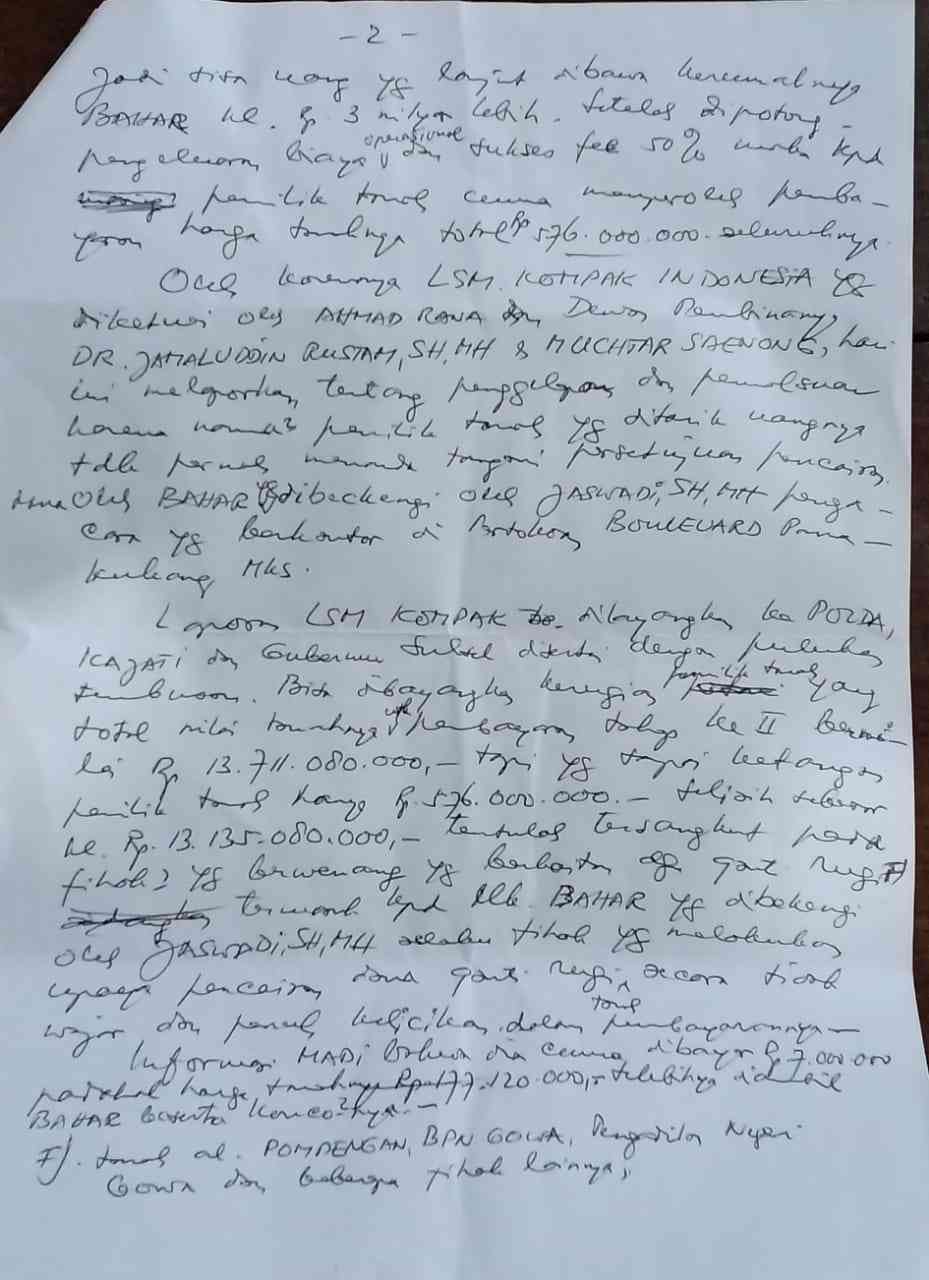 - 2 -
Jadi sisa uang yg lanjut dibawa kerumahnya
BAHAR kl. Rp. 3 milyar lebih. Setelah dipotong
pengeluaran biaya operasional dan sukses fee 50% maka kpd
pemilik tanah cuma memperoleh pemba-
yaran harga tanahnya total Rp 576.000.000. seluruhnya.
Oleh karenanya LSM. KOMPAK INDONESIA yg
diketuai oleh AHMAD RANA dan Dewan Pembinanya,
DR. JAMALUDDIN RUSTAM, SH, MH & MUCHTAR SAENONG, hari
ini melaporkan tentang penggelapan dan pemalsuan
karena nama2 pemilik tanah yg ditarik uangnya
tdk pernah menanda tangani persetujuan pencairan
dana Oleh BAHAR yg dibeckengi oleh JASWADI, SH, MH penga-
cara yg berkantor di BOULEVARD Pana-
kukang Mks.
Laporan LSM KOMPAK tsb. dilayangkan ke POLDA,
KAJATI dan Gubernur Sulsel disertai dengan puluhan
tembusan. Bisa dibayangkan kerugian pemilik tanah yang
total nilai tanahnya utk pembayaran tahap ke II berni-
lai Rp 13.711.080.000,- tapi yg sampai ketangan
pemilik tanah hanya Rp. 576.000.000.- Selisih sebesar
kl. Rp. 13.135.080.000,- tentulah tersangkut pada
fihak2 yg berwenang yg berkaitan dg ganti rugi F)
termasuk kpd Sdr. BAHAR yg dibekengi
oleh JASWADI, SH, MH selaku fihak yg melakukan
upaya pencairan dana ganti rugi tanah secara tidak
wajar dan penuh kelicikan dalam pembayarannya -
Informasi MADI bahwa dia cuma dibayar Rp 7.000.000
padahal harga tanahnya Rp 177.120.000,- selebihnya diambil
BAHAR beserta konco2nya. -
F). tanah al. POMPENGAN, BPN GOWA, Pengadilan Negeri
Gowa dan beberapa fihak lainnya,